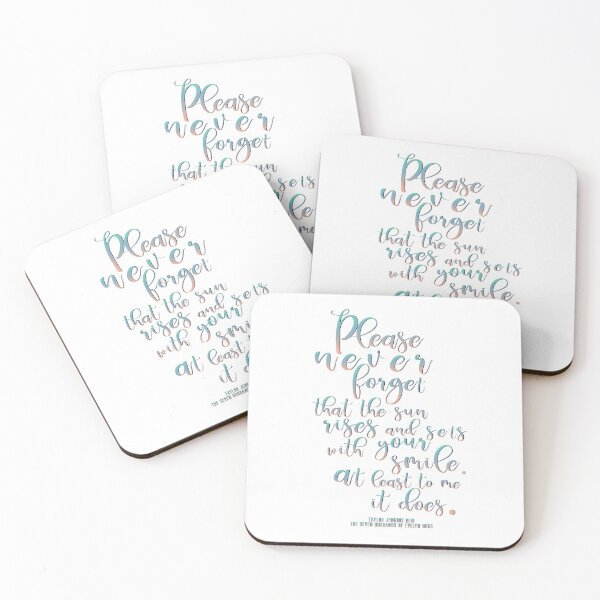 Please
never
forget
that the sun
and sets
me
Please
never
forget
that the sun
rises and sets
with your
smile.
Please
never
forget
that the sun
rises and sets
with your
smile
at least
it does.
Please
never
forget
that the sun
rises and sets
with your
smile.
at least to me
it does.
TAYLOR JENKINS REID
THE SEVEN HUSBANDS OF EVELYN HUGO